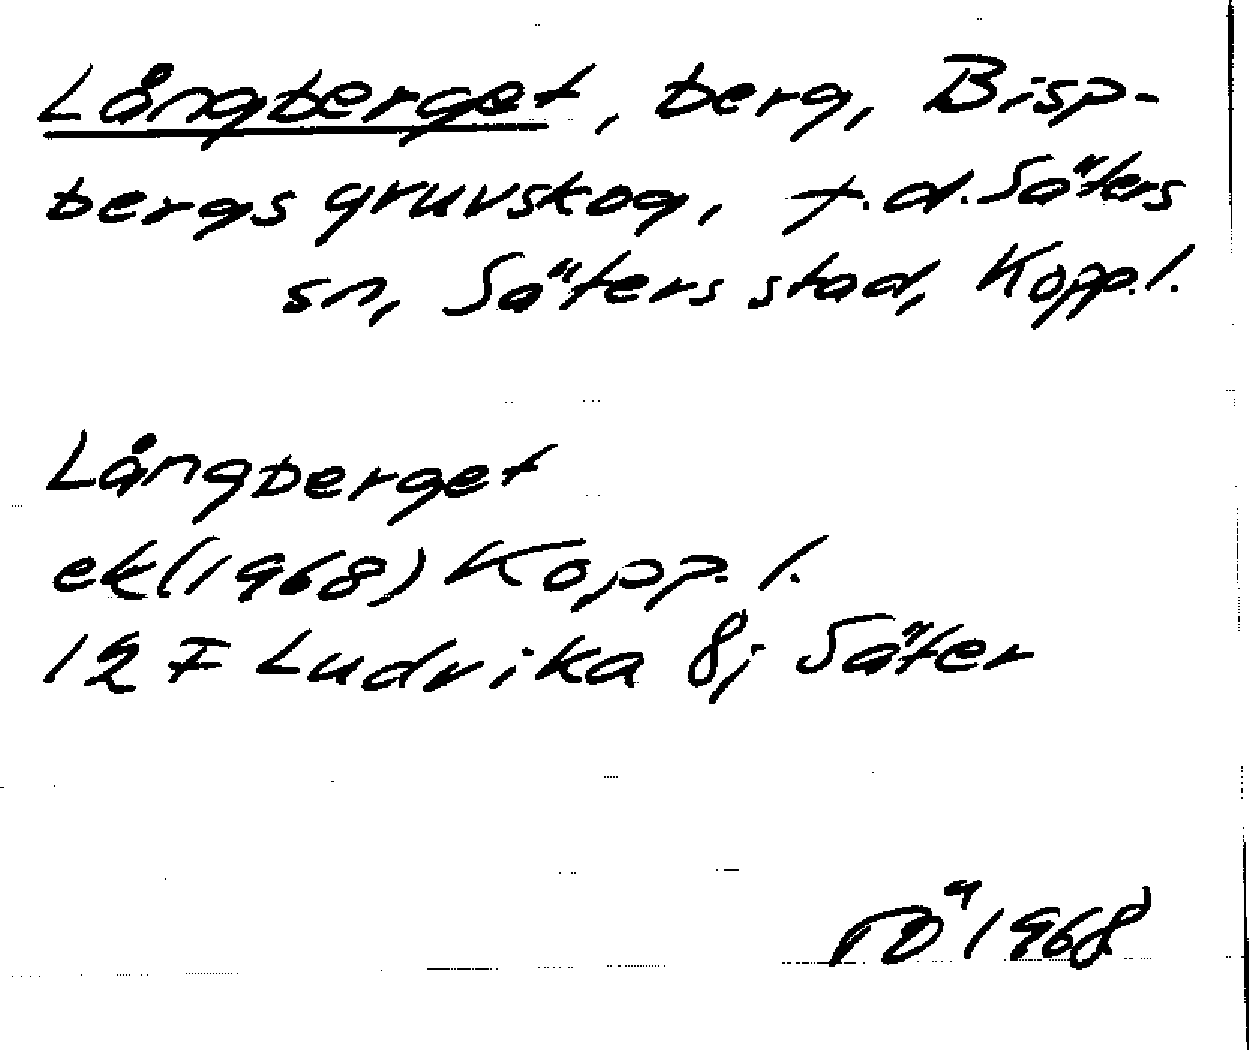 Långberget, berg, Bisp-
bergs gruvskog, f.d. Säters
sn, Säters stad, Kopp.l.
Långberget
ek(1968) Kopp. l.
12 F Ludvika 8j Säter
1968